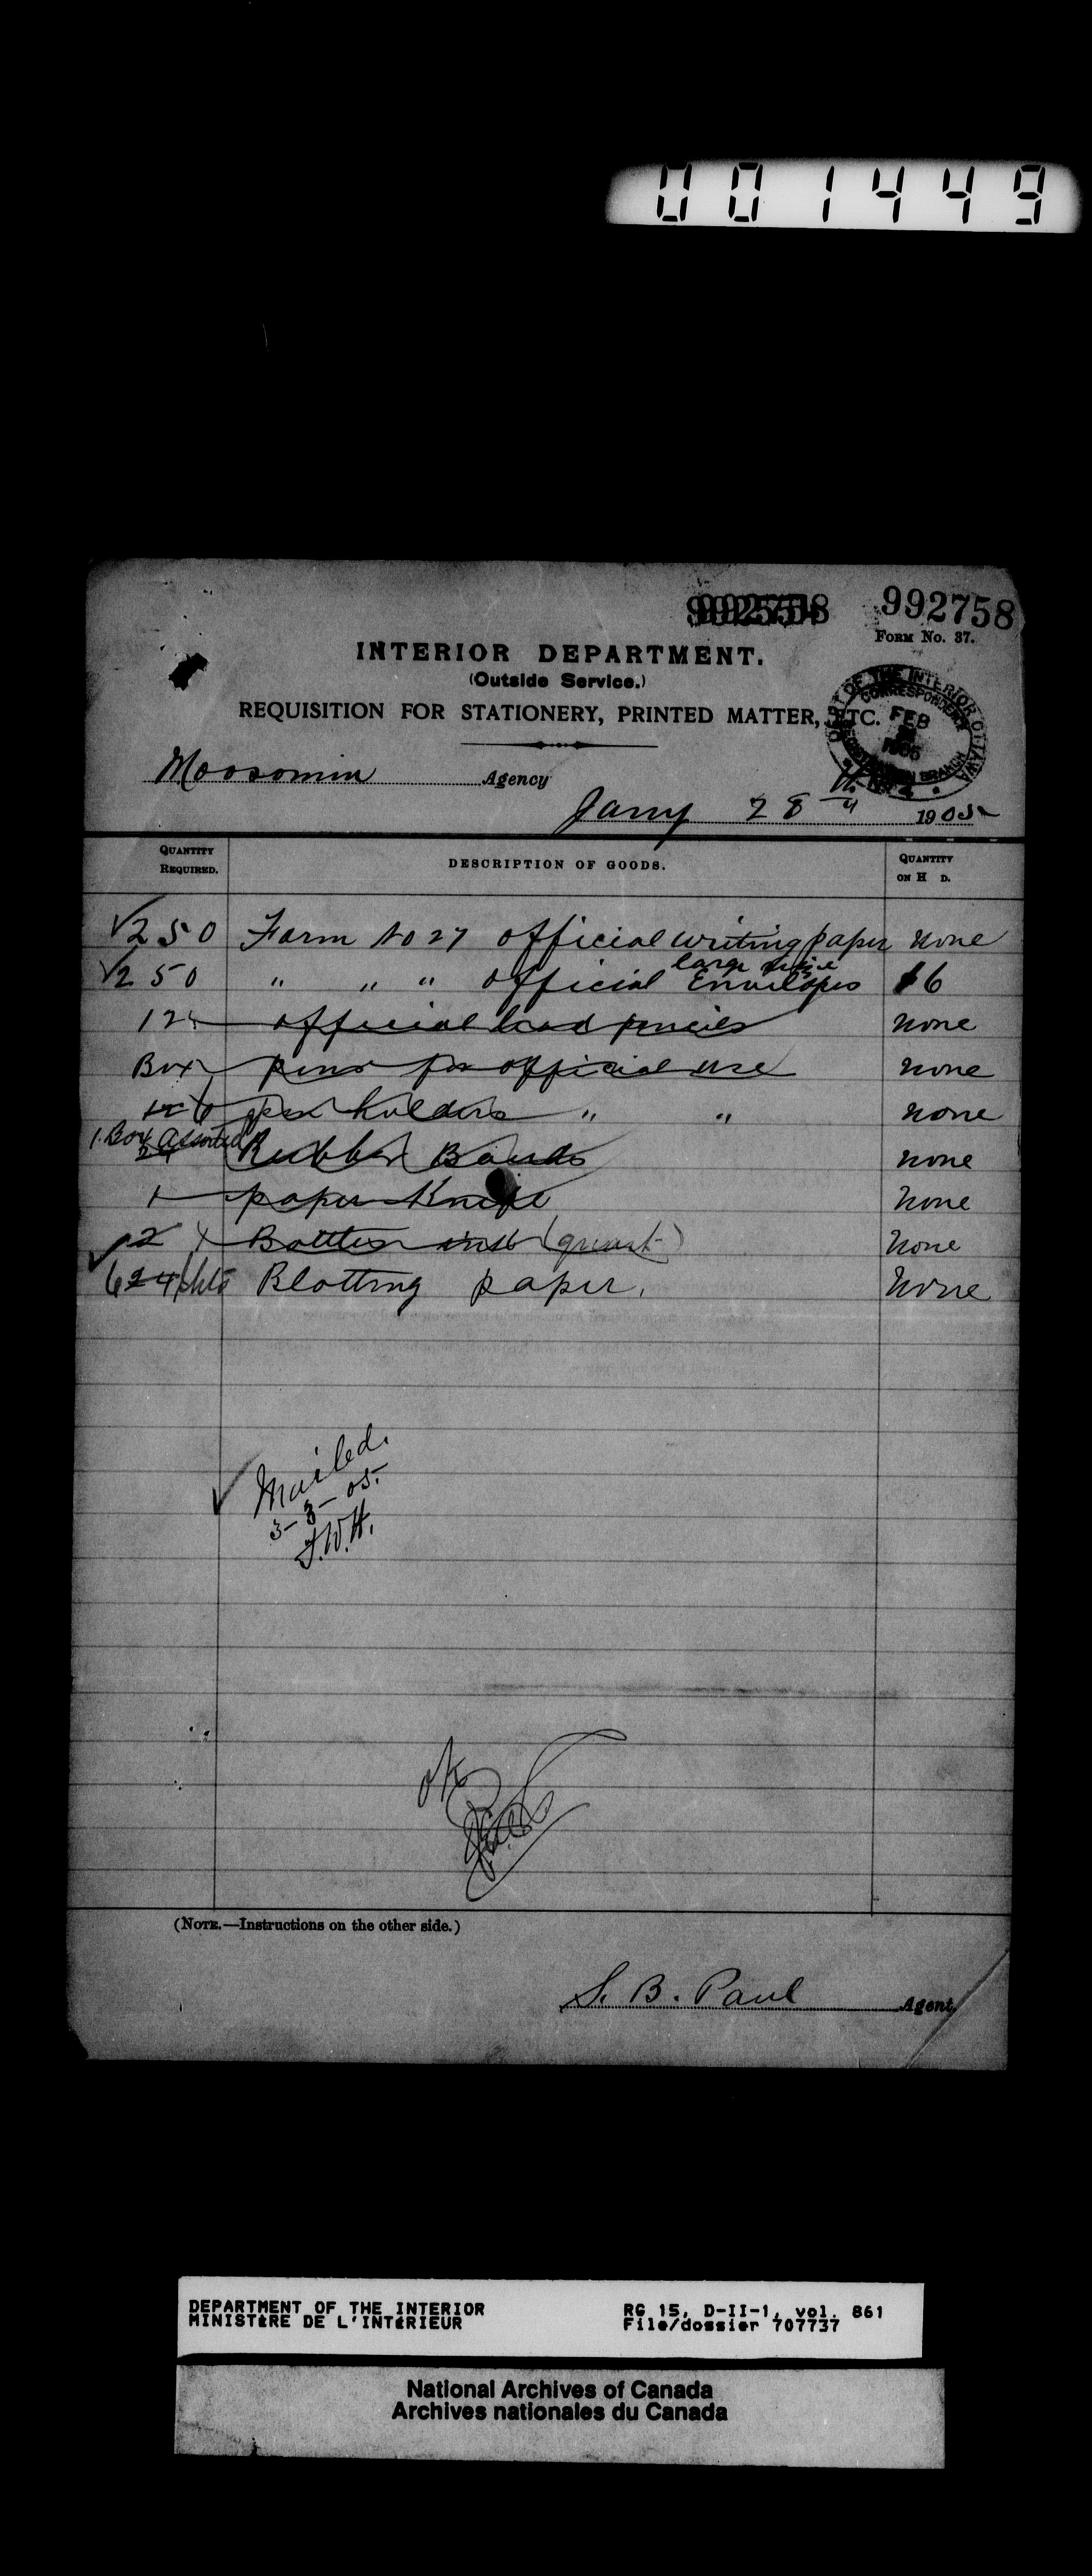 001449
992758
Form No. 37.
INTERIOR DEPARTMENT.
(Outside Service.)
REQUISITION FOR STATIONERY, PRINTED MATTER, ETC.
DEPT OF THE INTERIOR OTTAWA
CORRESPONDENCE
FEB
1905
REGISTRATION BRANCH
Moosomin Agency
Jany 28th 1905
QUANTITY REQUIRED. DESCRIPTION OF GOODS. QUANTITY ON H D.
√250 Form No 27 official writing paper none
large size
√250 " " " official Envelopes 16
12 official lead pencils none
Box pens for official use none
6 pen holders " " none
1 Box assorted
24 Rubber Bands none
1 paper Knife none
2 Bottles ink (quart) none
√ 6 24 shts Blotting paper. none
√ Mailed.
3-3-05.
J.W.H.
OK
(NOTE.—Instructions on the other side.)
S. B. Paul Agent
DEPARTMENT OF THE INTERIOR RG 15, D-II-1, vol. 861
MINISTÈRE DE L'INTÉRIEUR File/dossier 707737
National Archives of Canada
Archives nationales du Canada